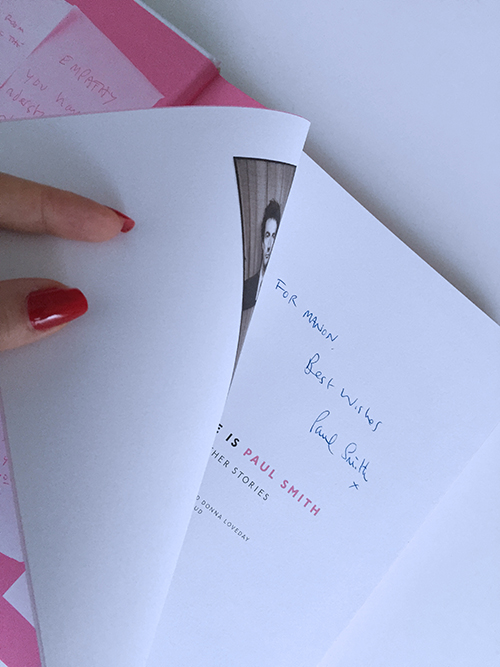 EMPATHY
YOU
FOR MANON,
Best Wishes
Paul Smith
x
E IS PAUL SMITH
HER STORIES
D DONNA LOVEDAY
UP